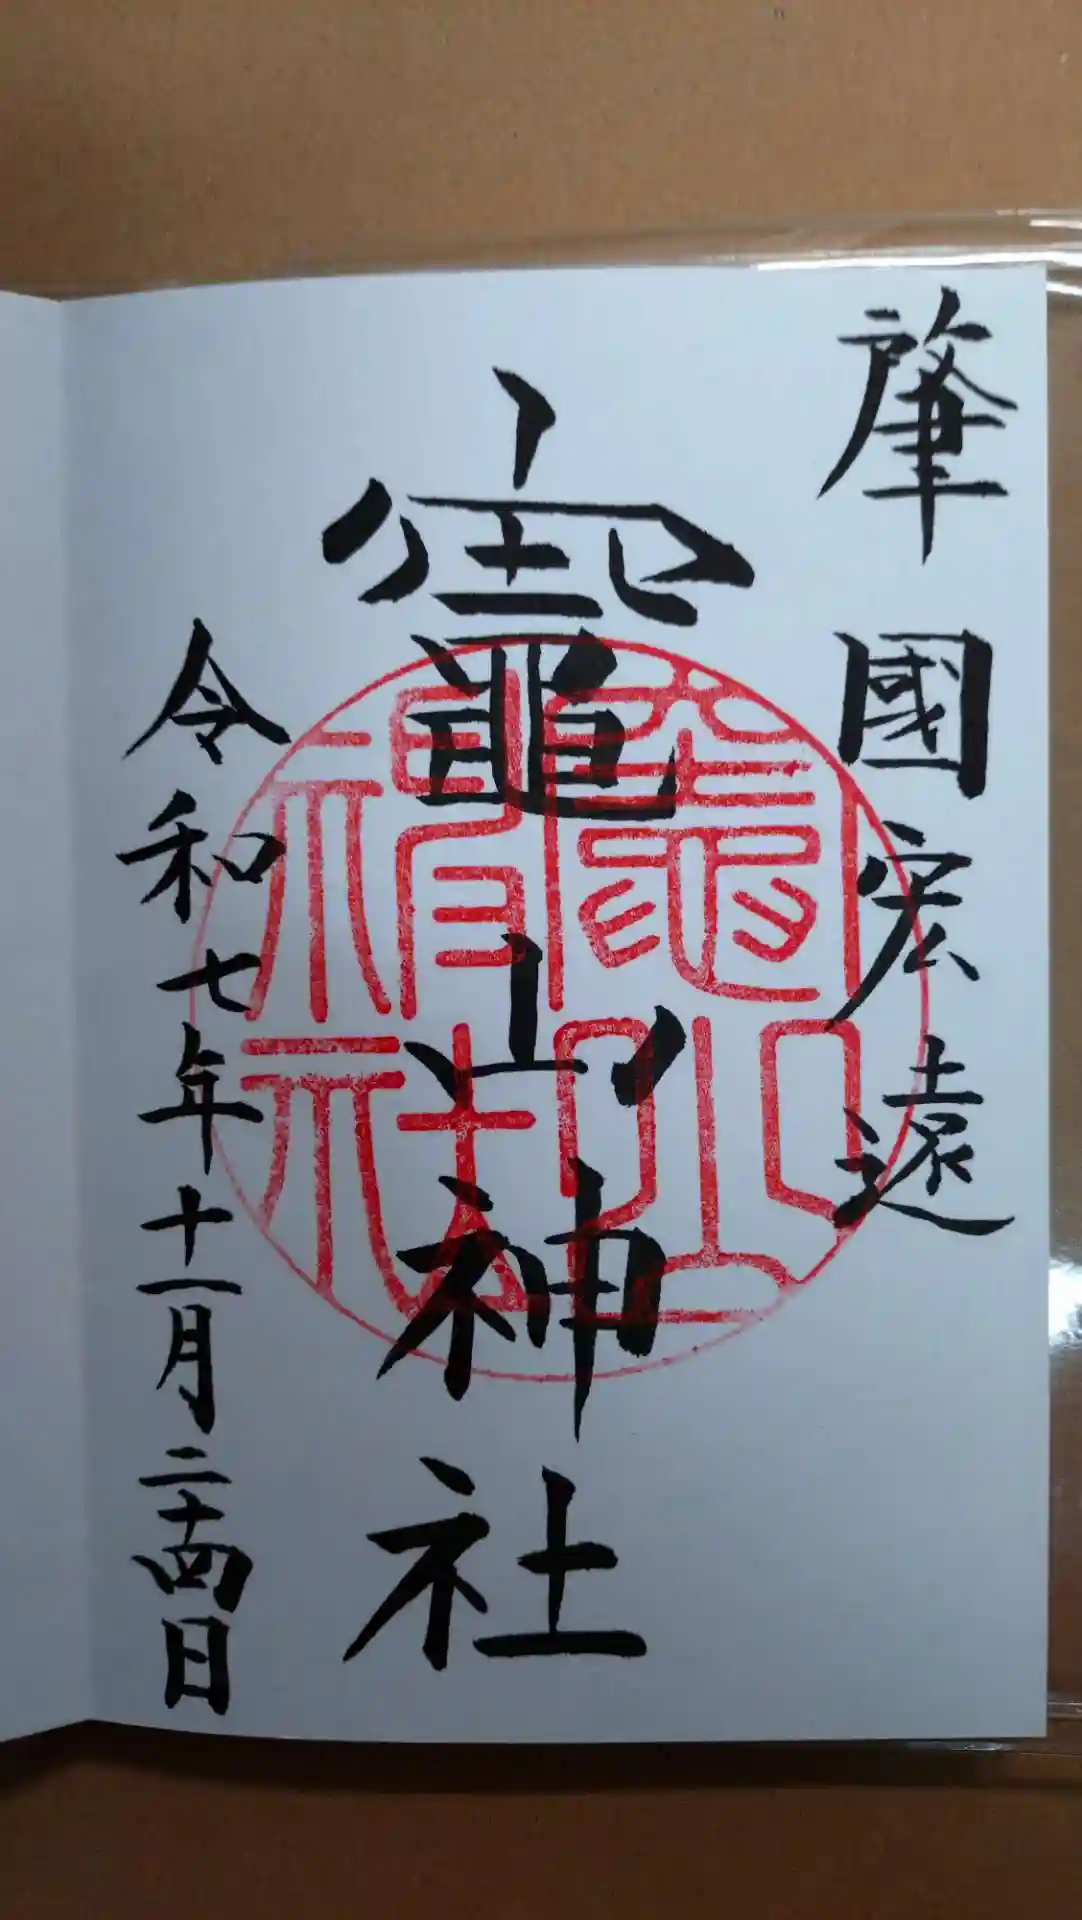 肇國宏遠
竈山神社
令和七年十一月二十四日
竈山
神社